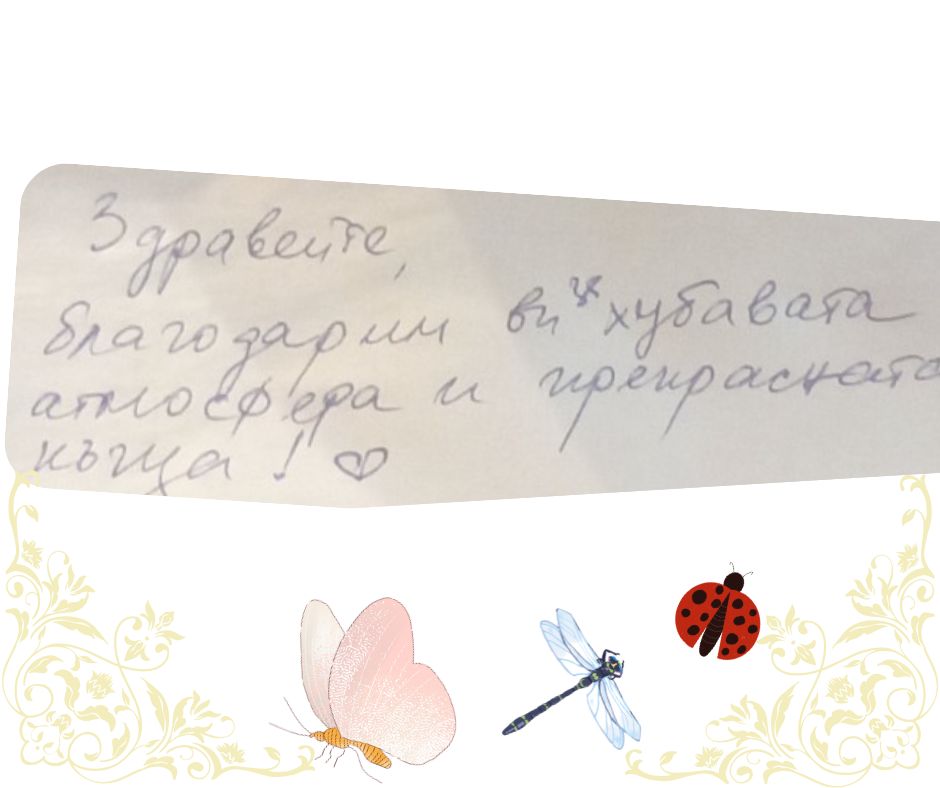 Здравейте,
благодарим ви хубавата
атмосфера и прекрасната
къща! ♡